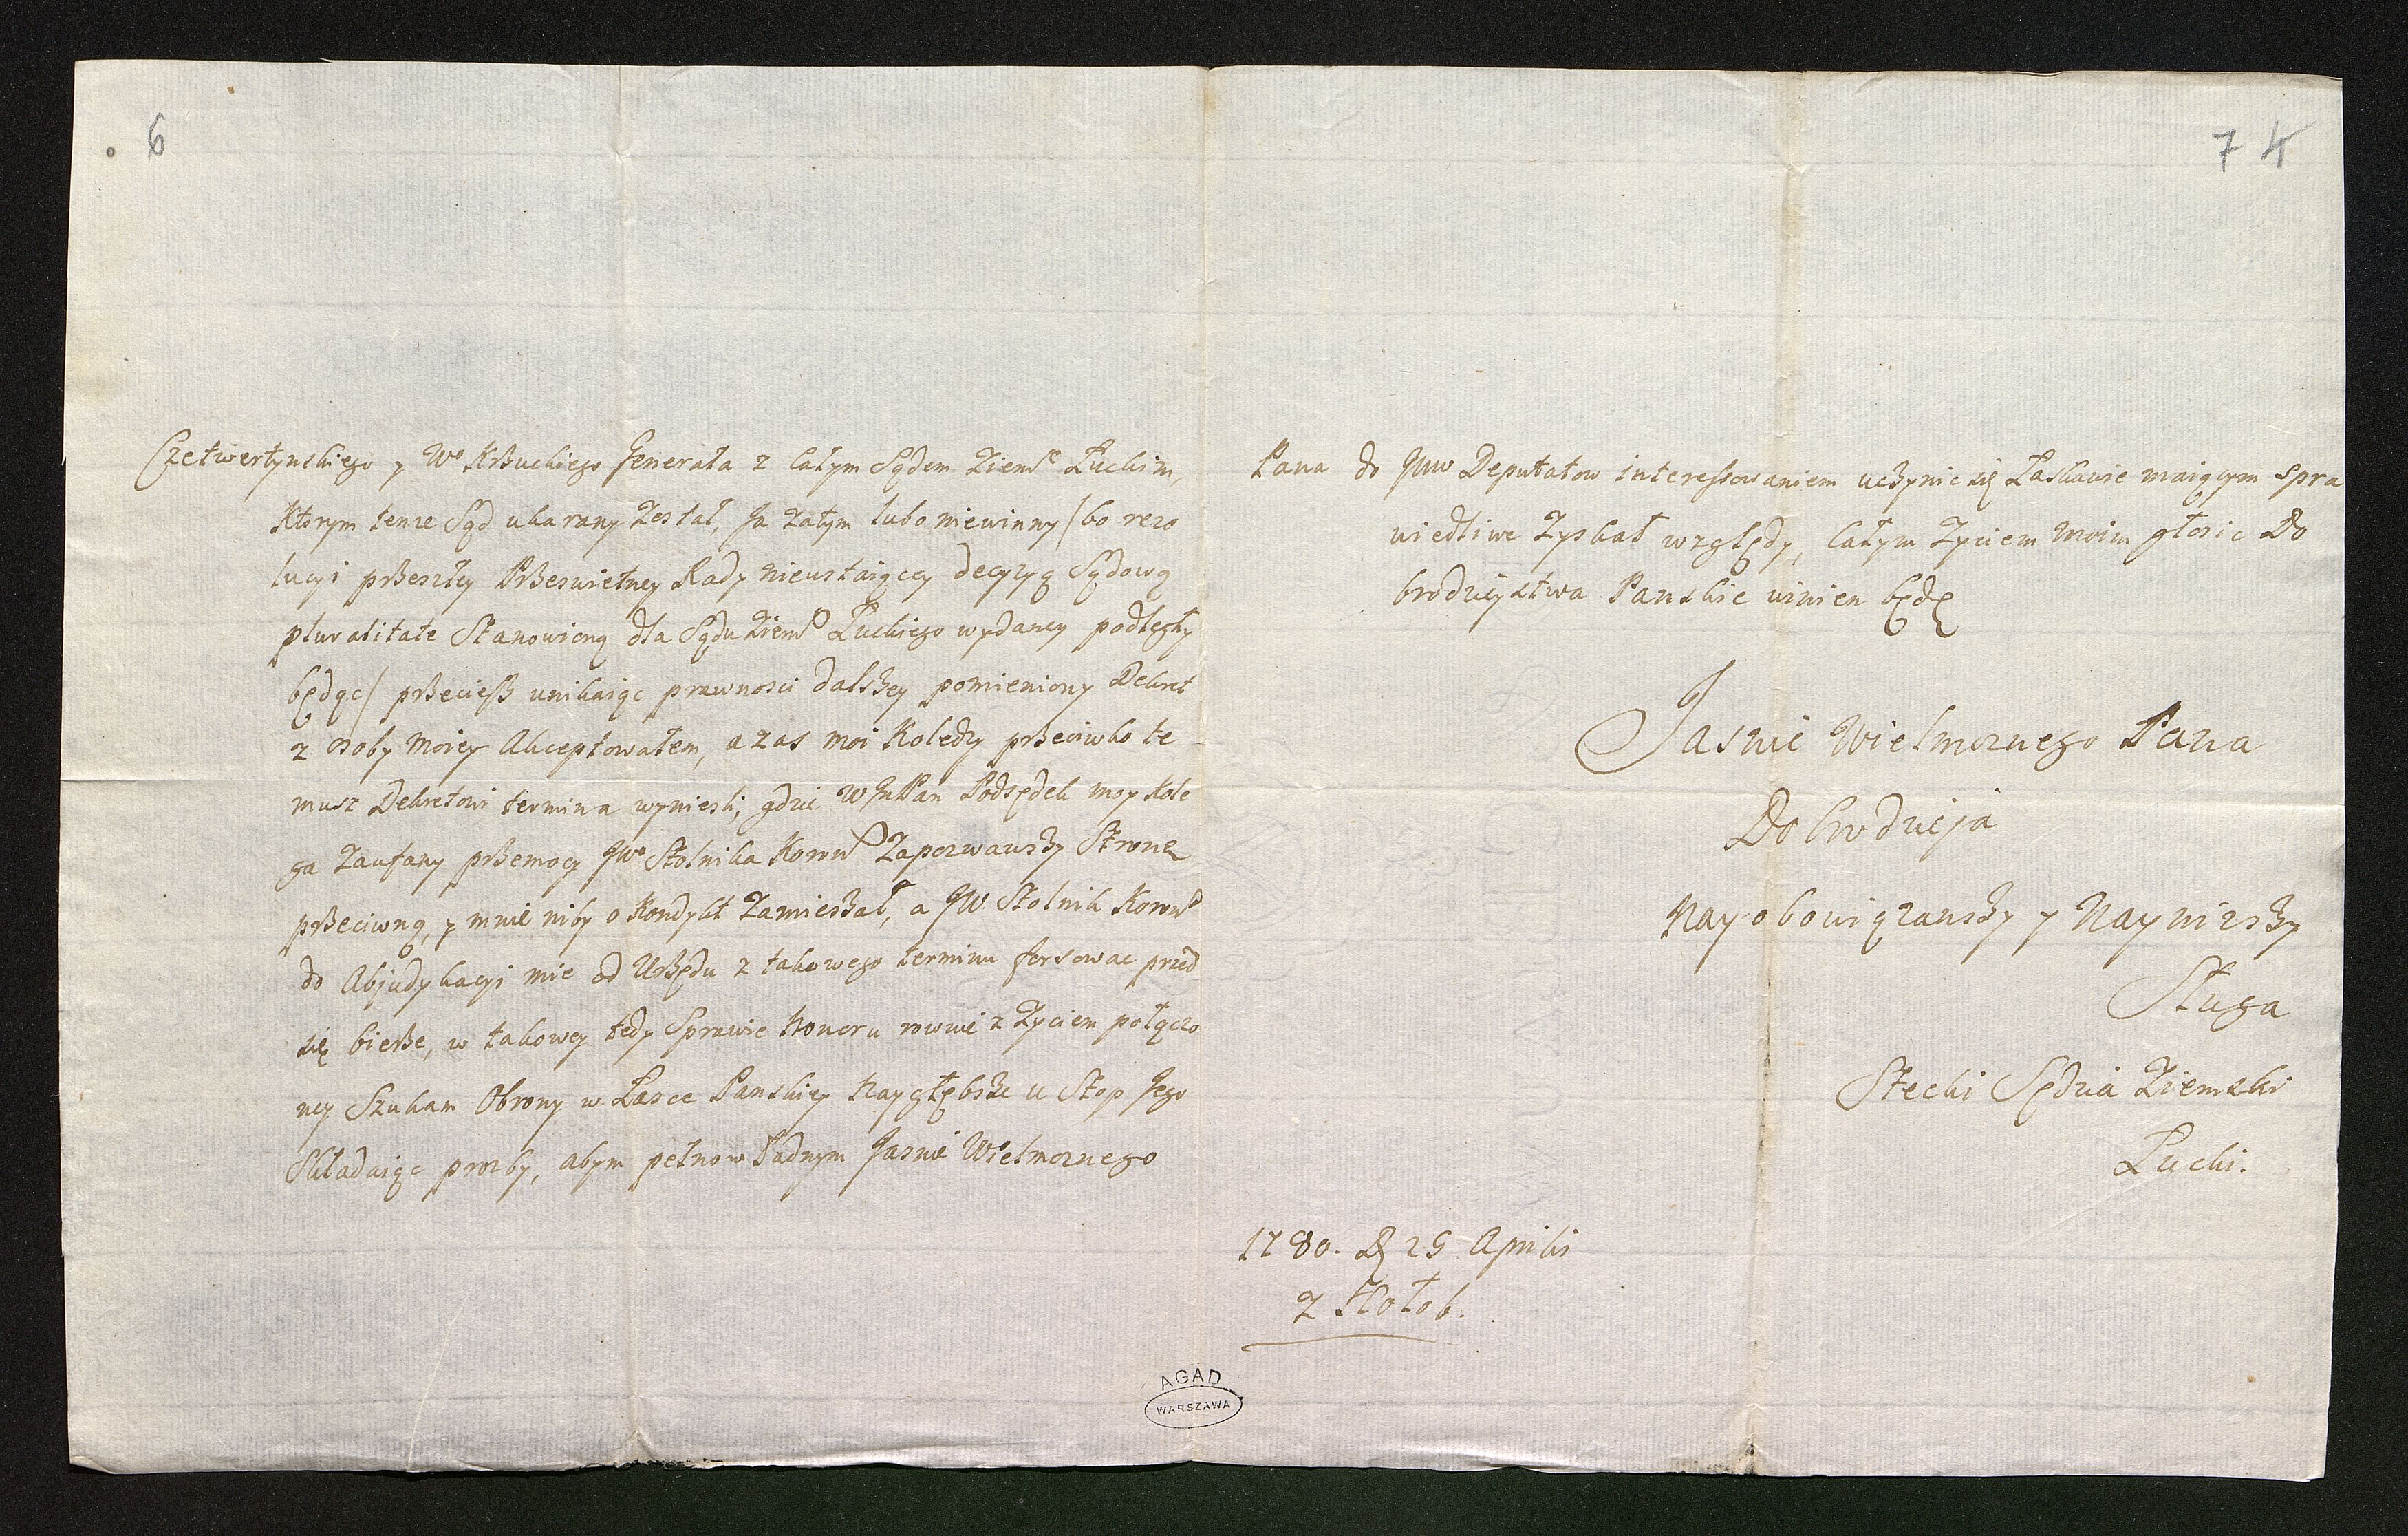 6
Czetwertynskiego y Wo Krzuckiego Generała z Całym Sądem Ziemo Łuckim,
Ktorym tenze Sąd ukarany Został, Ja Zatym lubo niewinny / bo rezo
lucyi przeszłey Przeswietney Rady Nieustaiącey decyzyą Sądową
pluralitate Stanowioną dla Sądu Ziemo Łuckiego wydaney podległy
będąc / przeciesz unikaiąc prawnosci dalszey pomieniony Dekret
z osoby Moiey Akceptowałem, a zas moi Koledzy przeciwko te
musz Dekretowi termina wyniesli, gdzie WJmPan Podsędek moy Kole
ga Zaufany przemocy JWo Stolnika Korono Zapozwawszy Stronę
przeciwną, y mnie niby o Kondykt Zamieszał, a JW Stolnik Korono
do Abjudykacyi mie od Urzędu z takowego terminu forsowac przed
się bierze, w takowey tedy Sprawie honoru rownie z Zyciem połączo
ney Szukam Obrony w Łasce Panskiey Nay głębsze u Stop Jego
Składaiąc prozby, abym pełnowładnym Jasnie Wielmoznego
7 4
Pana do JWW Deputatow interessowaniem uczynic się Łaskawie maiącym spra
wiedliwe Zyskał względy, Całym Zyciem Moim głosic Do
brodzieystwa Panskie winien będę
Jasnie Wielmoznego Pana
Dobrodzieja
Nayobowiązanszy y Naynizszy
Sługa
Stecki Sędzia Ziemski
Łucki.
1780. D 25 Aprilis
z Hołob.
AGAD
WARSZAWA